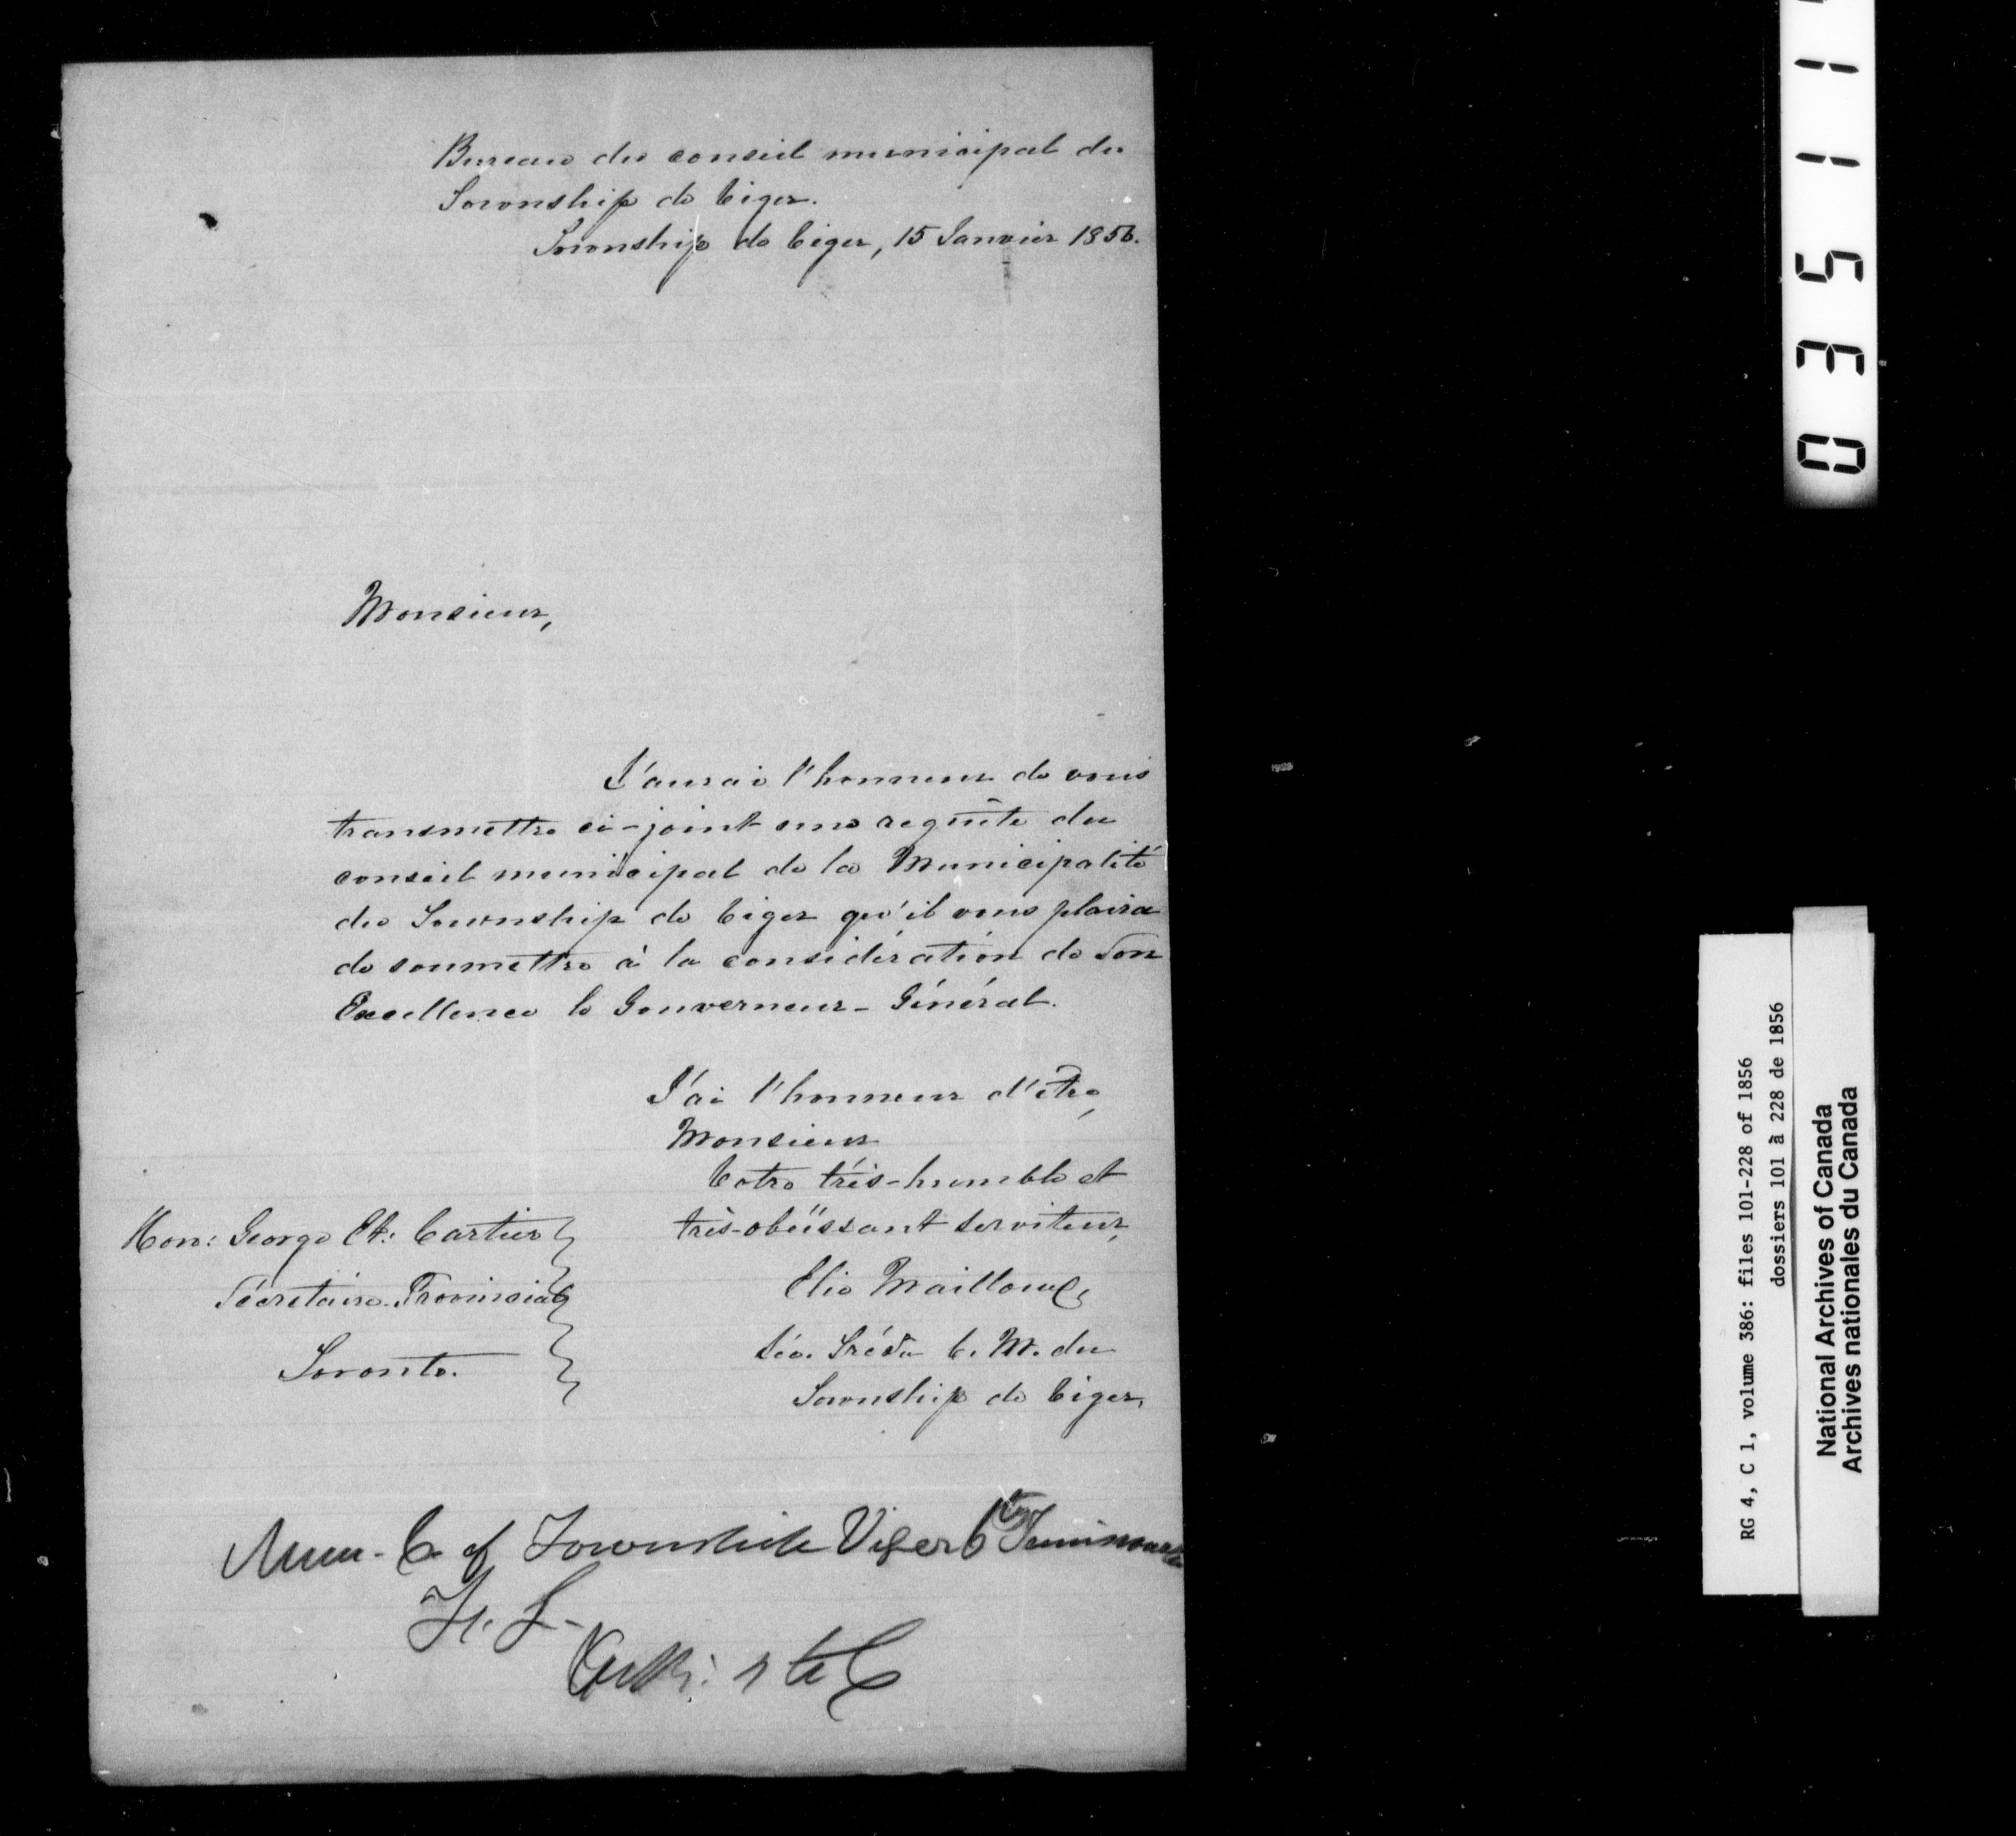 Bureau du conseil municipal du
Township de Viger.
Township de Viger, 15 Janvier 1856.
Monsieur,
J'aurai l'honneur de vous
transmettre ci-joint une requête du
conseil municipal de la Municipalité
du Township de Viger qu'il vous plaira
de soumettre à la considération de Son
Excellence le Gouverneur-Général.
J'ai l'honneur d'être,
Monsieur
Votre très-humble et
très-obéissant serviteur,
Elie Mailloux,
Séc. Trés. C. M. du
Township de Viger,
Hon: George Et: Cartier
Sécretaire Provincial
Toronto.
Mun. C. of Township Viger Co Temiscouata
RG 4, C 1, volume 386: files 101-228 of 1856
dossiers 101 à 228 de 1856
National Archives of Canada
Archives nationales du Canada
0 3 5 1 1